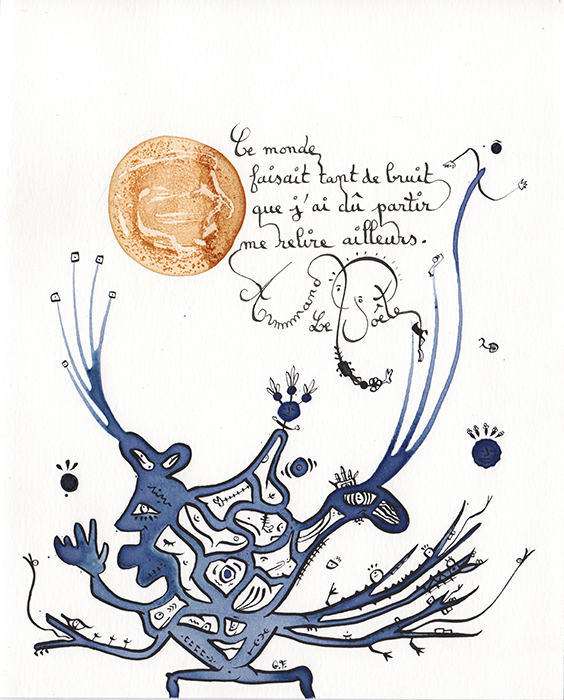 Le monde
faisait tant de bruit
que j'ai dû partir
me relire ailleurs.
Armmand
Le Poëte
G.F.